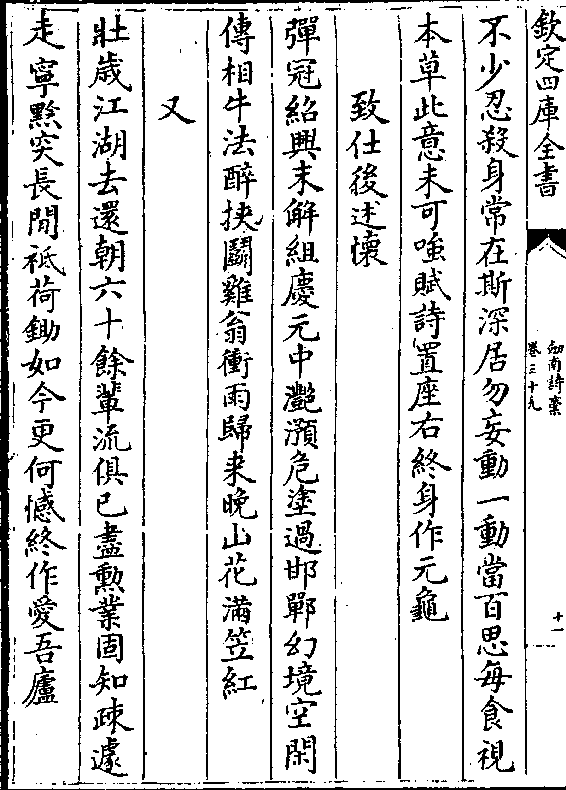 欽定四庫全書
劍南詩藁
卷三十九
十一
不少忍殺身常在斯深居勿妄動一動當百思每食視
本草此意未可嗤賦詩置座右終身作元龜
致仕後述懷
彈冠紹興末解組慶元中灔澦危塗過邯鄲幻境空閑
傳相牛法醉挾鬬雞翁衝雨歸来晚山花滿笠紅
又
壯歲江湖去還朝六十餘輩流俱已盡勲業固知疎遽
走寧黔突長閒祗荷鋤如今更何憾終作愛吾廬